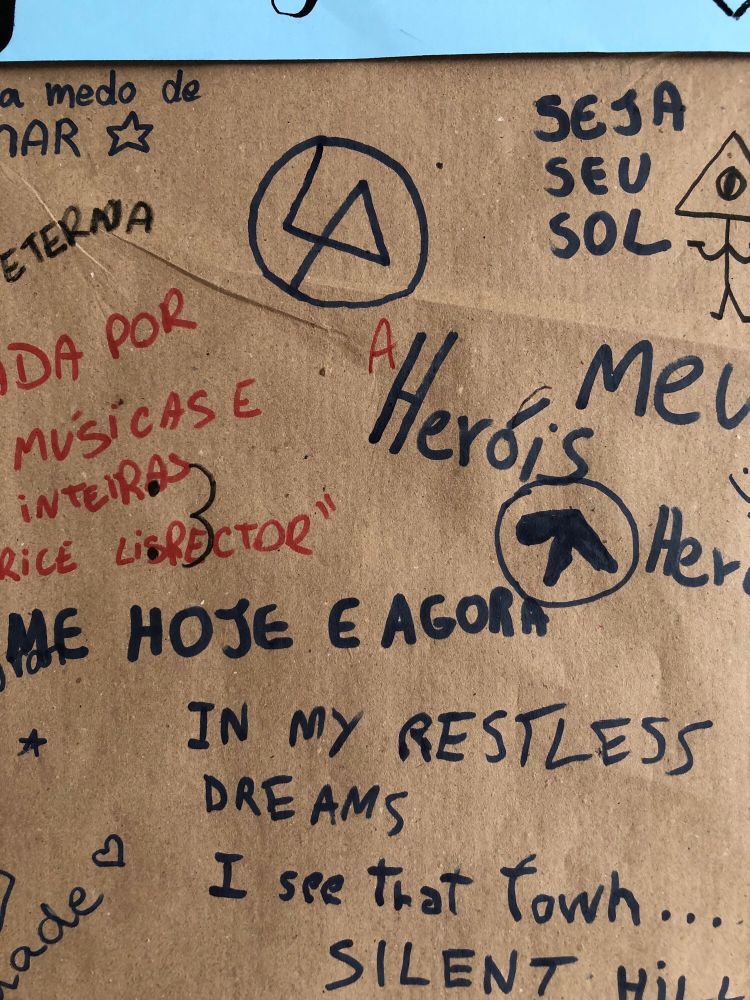 a medo de
MAR
SEJA
SEU
SOL
ETERNA
ADA POR
MÚSICAS E
INTEIRAS
RICE LISPECTOR"
A
Heróis
Meu
Her
ME HOJE E AGORA
IN MY RESTLESS
DREAMS
I see that town...
SILENT HILL